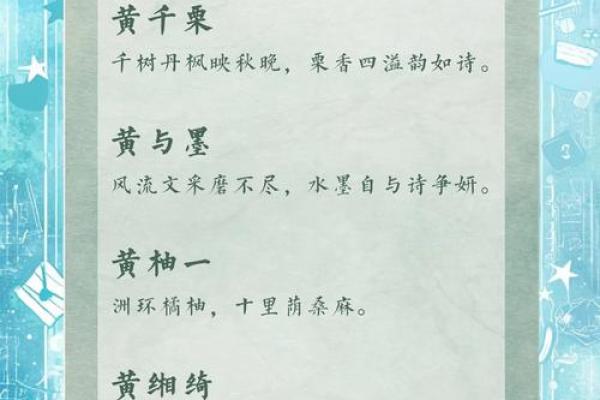 黄千栗
千树丹枫映秋晚，栗香四溢韵如诗。
黄与墨
风流文采磨不尽，水墨自与诗争妍。
黄柚一
洲环橘柚，十里荫桑麻。
黄缃绮